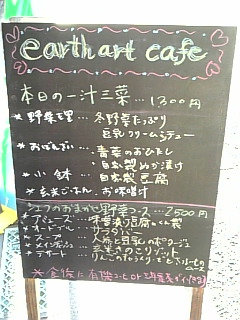 earth art cafe
本日の一汁三菜…1300円
* 野菜を里… 冬野菜たっぷり
豆乳クリームシチュー
* おばんざい… 青菜のおひたし
自家製ぬか漬け
* 小鉢… 自家製豆腐
* 玄米ごはん、お味噌汁
シェフのおまかせ野菜コース…2500円
* アミューズ… 味噌漬け豆腐のくん製
* オードブル… サラダバー
* スープ… 人参と豆乳のポタージュ
* メインディッシュ… 玄米きのこリゾット
* デザート… りんごの